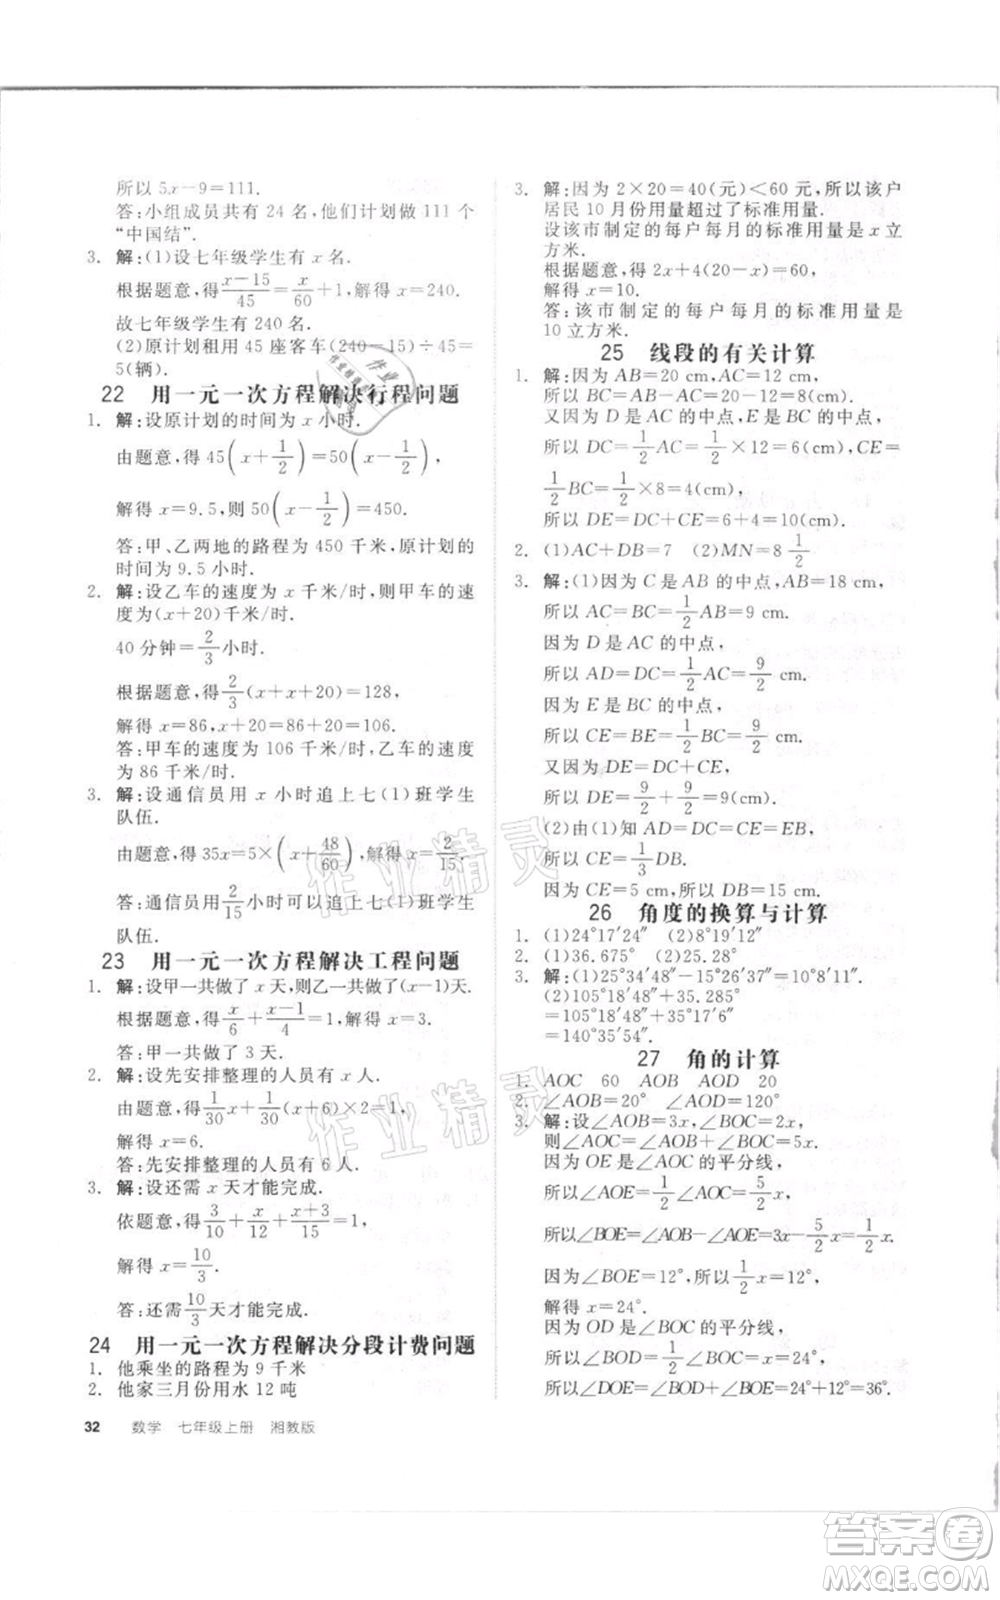 所以 5x-9=111.
答:小组成员共有 24 名,他们计划做 111 个
“中国结”.
3. 解:(1)设七年级学生有 x 名.
根据题意,得 (x-15)/45 = x/60 +1,解得 x=240.
故七年级学生有 240 名.
(2)原计划租用 45 座客车(240-15)÷45=
5(辆).
22 用一元一次方程解决行程问题
1. 解:设原计划的时间为 x 小时.
由题意,得 45(x+1/2)=50(x-1/2),
解得 x=9.5,则 50(x-1/2)=450.
答:甲、乙两地的路程为 450 千米,原计划的
时间为 9.5 小时.
2. 解:设乙车的速度为 x 千米/时,则甲车的
速度为(x+20)千米/时.
40 分钟=2/3小时.
根据题意,得2/3(x+x+20)=128,
解得 x=86,x+20=86+20=106.
答:甲车的速度为 106 千米/时,乙车的速度
为 86 千米/时.
3. 解:设通信员用 x 小时追上七(1)班学生
队伍.
由题意,得 35x=5×(x+48/60),解得 x=2/15.
答:通信员用2/15小时可以追上七(1)班学生
队伍.
23 用一元一次方程解决工程问题
1. 解:设甲一共做了 x 天,则乙一共做了(x-1)天.
根据题意,得 x/6+(x-1)/4=1,解得 x=3.
答:甲一共做了 3 天.
2. 解:设先安排整理的人员有 x 人.
由题意,得 x/30+1/30(x+6)×2=1,
解得 x=6.
答:先安排整理的人员有 6 人.
3. 解:设还需 x 天才能完成.
依题意,得3/10+x/12+(x+3)/15=1,
解得 x=10/3.
答:还需10/3天才能完成.
24 用一元一次方程解决分段计费问题
1. 他乘坐的路程为 9 千米
2. 他家三月份用水 12 吨
3. 解:因为 2×20=40(元)<60 元,所以该户
居民 10 月份用量超过了标准用量.
设该市制定的每户每月的标准用量是 x 立
方米.
根据题意,得 2x+4(20-x)=60,
解得 x=10.
答:该市制定的每户每月的标准用量是
10 立方米.
25 线段的有关计算
1. 解:因为 AB=20 cm,AC=12 cm,
所以 BC=AB-AC=20-12=8(cm).
又因为 D 是 AC 的中点,E 是 BC 的中点,
所以 DC=1/2AC=1/2×12=6(cm),CE=
1/2BC=1/2×8=4(cm),
所以 DE=DC+CE=6+4=10(cm).
2. (1)AC+DB=7 (2)MN=8 1/2
3. 解:(1)因为 C 是 AB 的中点,AB=18 cm,
所以 AC=BC=1/2AB=9 cm.
因为 D 是 AC 的中点,
所以 AD=DC=1/2AC=9/2 cm.
因为 E 是 BC 的中点,
所以 CE=BE=1/2BC=9/2 cm.
又因为 DE=DC+CE,
所以 DE=9/2+9/2=9(cm).
(2)由(1)知 AD=DC=CE=EB,
所以 CE=1/3DB.
因为 CE=5 cm,所以 DB=15 cm.
26 角度的换算与计算
1. (1)24°17′24″ (2)8°19′12″
2. (1)36.675° (2)25.28°
3. 解:(1)25°34′48″-15°26′37″=10°8′11″.
(2)105°18′48″+35.285°
=105°18′48″+35°17′6″
=140°35′54″.
27 角的计算
1. AOC 60 AOB AOD 20
2. ∠AOB=20° ∠AOD=120°
3. 解:设∠AOB=3x,∠BOC=2x,
则∠AOC=∠AOB+∠BOC=5x.
因为 OE 是∠AOC 的平分线,
所以∠AOE=1/2∠AOC=5/2x,
所以∠BOE=∠AOB-∠AOE=3x-5/2x=1/2x.
因为∠BOE=12°,所以1/2x=12°,
解得 x=24°.
因为 OD 是∠BOC 的平分线,
所以∠BOD=1/2∠BOC=x=24°,
所以∠DOE=∠BOD+∠BOE=24°+12°=36°.
32 数学 七年级上册 湘教版
作业精灵
作业精灵
答案圈
MXQE.COM